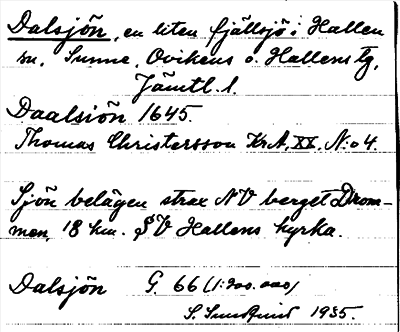 Dalsjön, en liten fjällsjö i Hallen
sn, Sunne, Ovikens o. Hallens tg,
Jämtl. l.
Daalsiön 1645.
Thomas Christersson KrA, XX. N:o 4.
Sjön belägen strax NV berget Drom-
men, 18 km. SV Hallens kyrka.
Dalsjön G. 66 (1:200.000)
S. Sundqvist 1935.